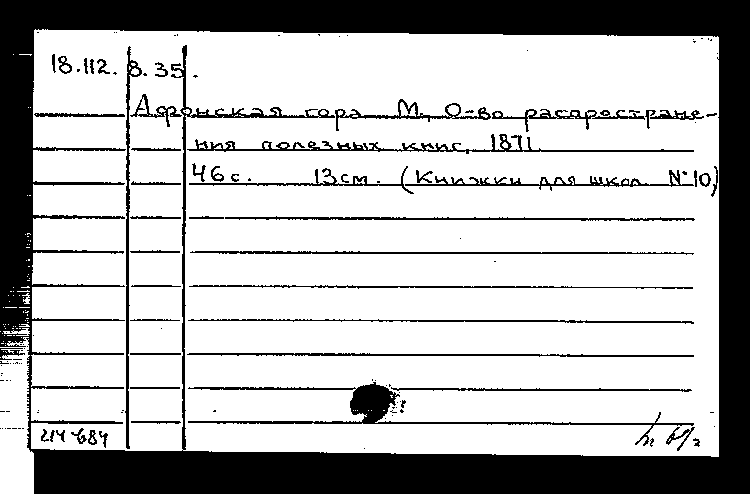 18.112.8.35.
Афонская гора М., О-во распростране-
ния полезных книг, 1871.
46 с. 13см. (Книжки для школ №10)
214 684